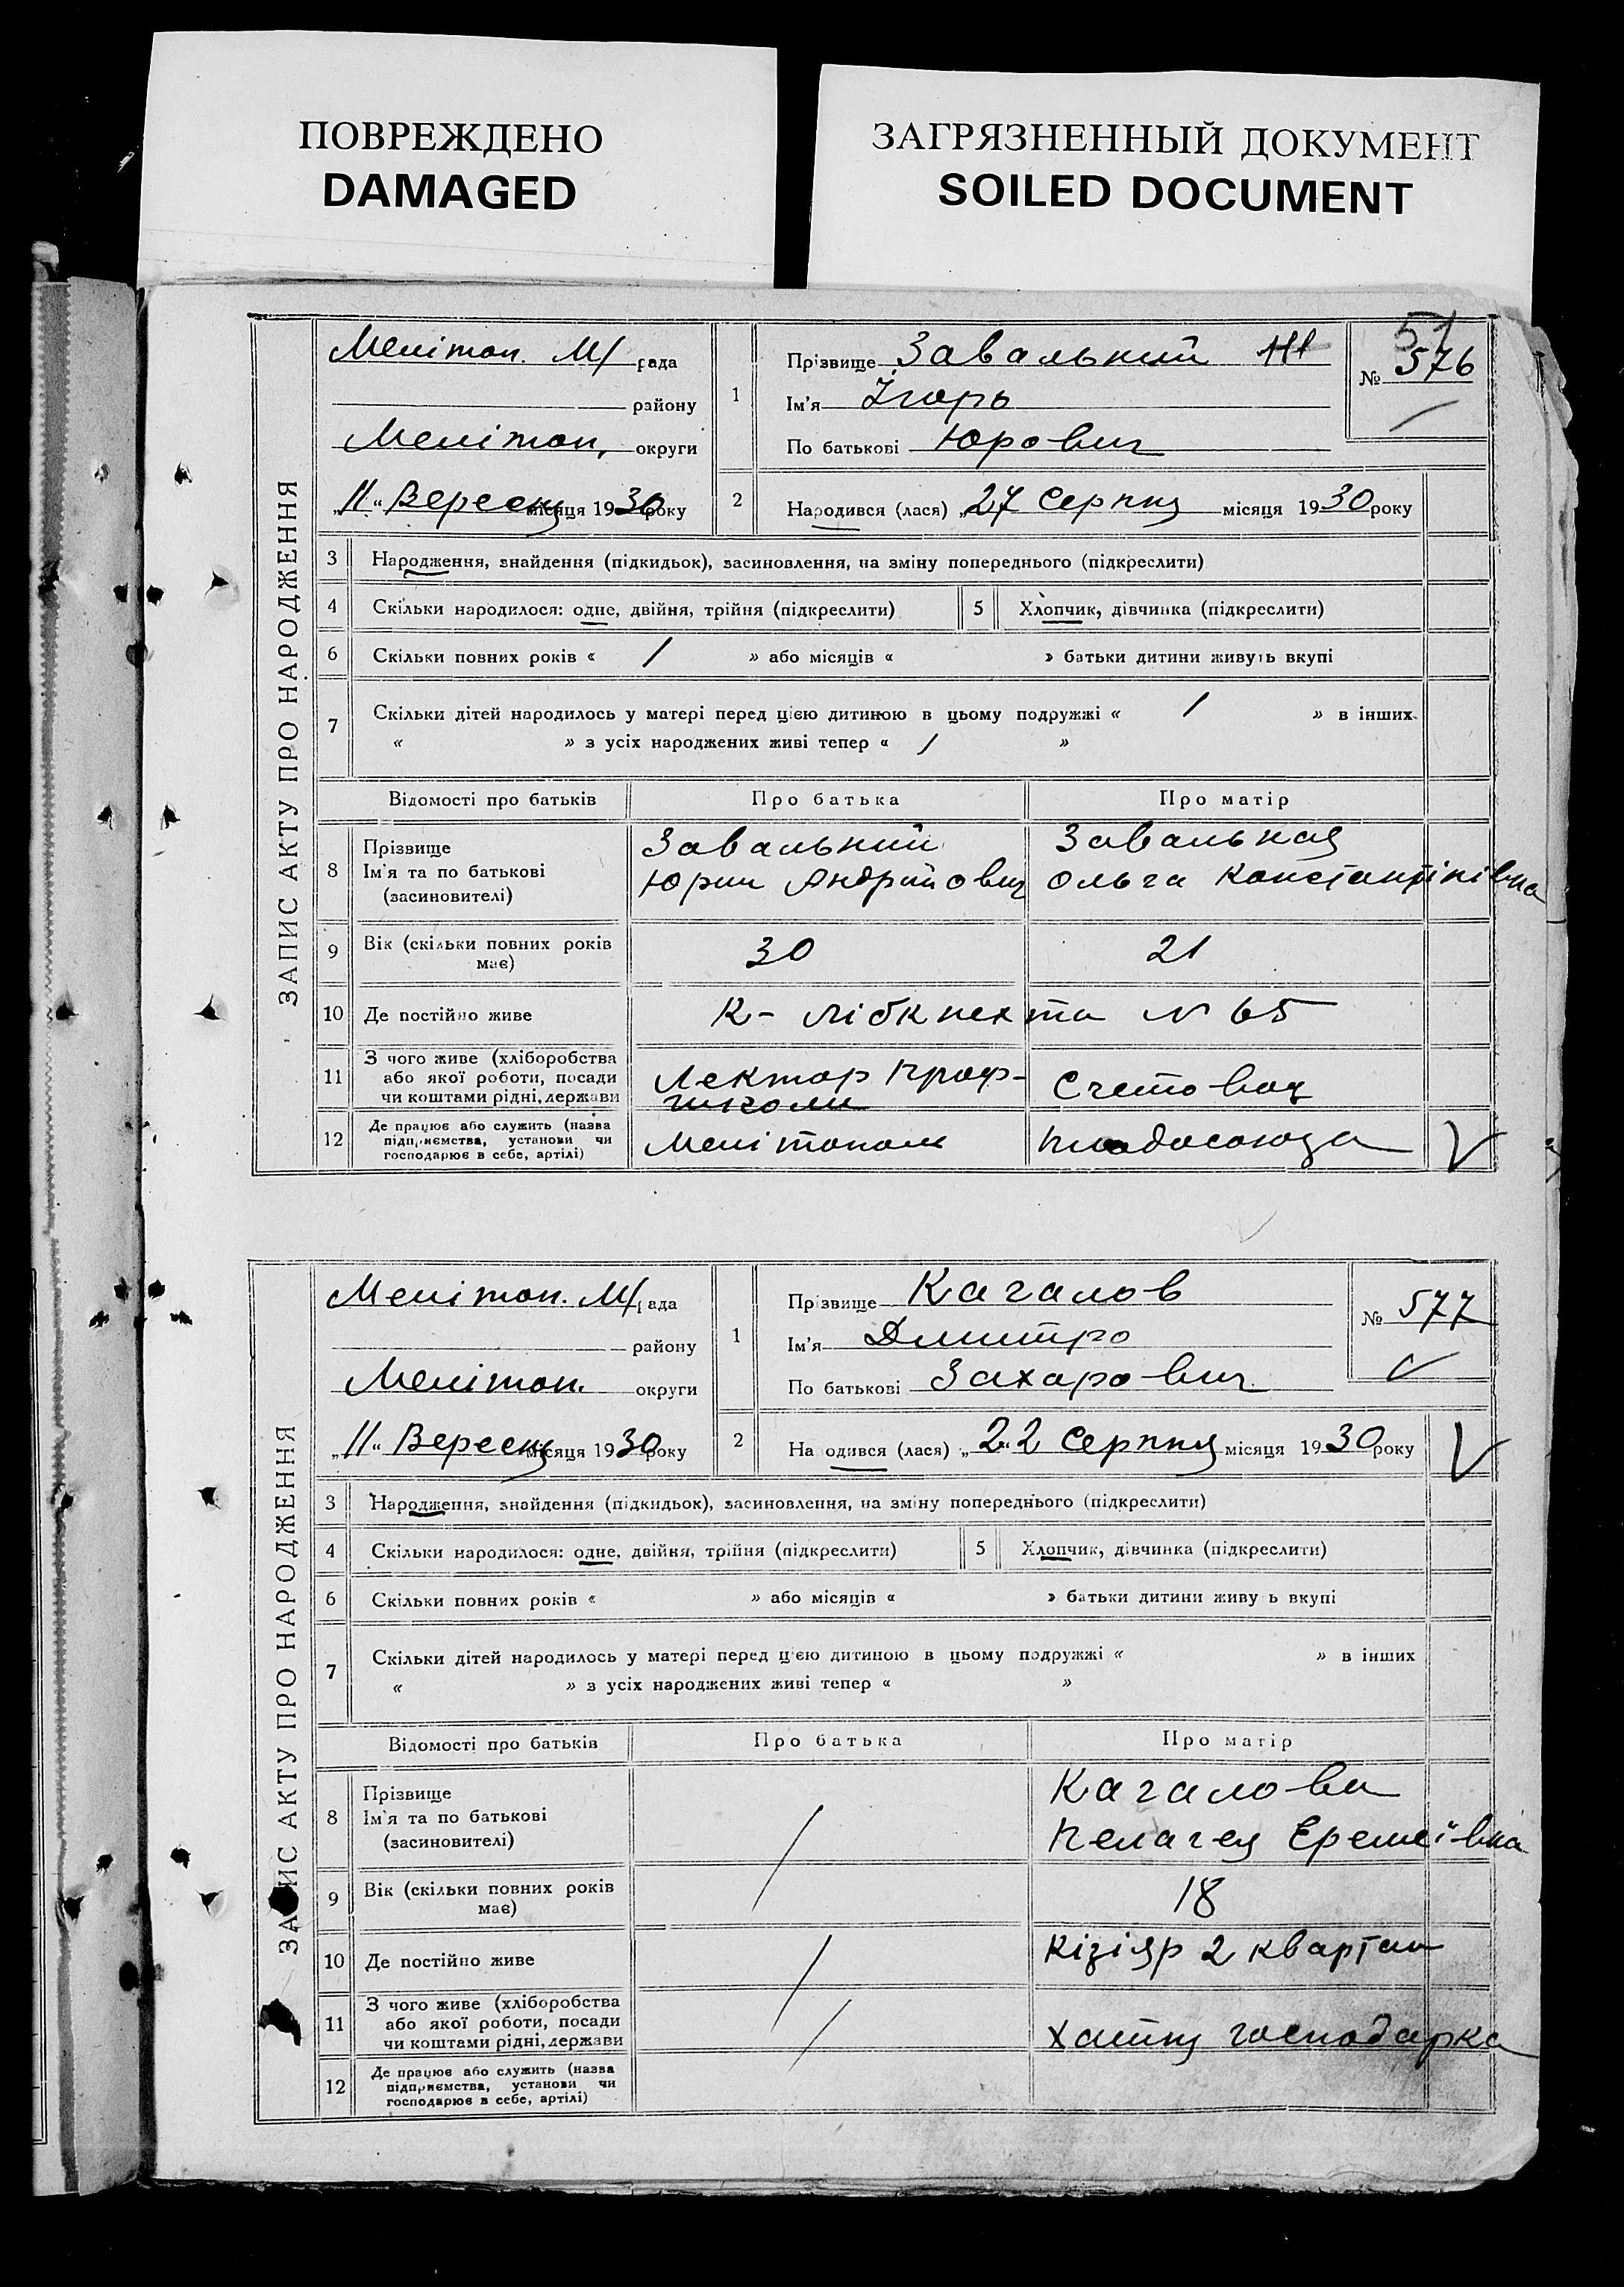 ПОВРЕЖДЕНО
DAMAGED
ЗАГРЯЗНЕННЫЙ ДОКУМЕНТ
SOILED DOCUMENT
51
ЗАПИС АКТУ ПРО НАРОДЖЕННЯ
Мелітоп. М/ рада
району
Мелітоп. округи
„11“ Вересня місяця 1930 року
1 Прізвище Завальний
Ім'я Ігорь
По батькові Юрович
№ 576
2 Народився (лася) „27 Серпня місяця 1930 року
3 Народження, знайдення (підкидьок), засиновлення, на зміну попереднього (підкреслити)
4 Скільки народилося: одне, двійня, трійня (підкреслити) 5 Хлопчик, дівчинка (підкреслити)
6 Скільки повних років « 1 » або місяців « » батьки дитини живуть вкупі
7 Скільки дітей народилось у матері перед цією дитиною в цьому подружжі « 1 » в інших
« » з усіх народжених живі тепер « 1 »
Відомості про батьків Про батька Про матір
8 Прізвище Ім'я та по батькові (засиновителі) Завальний Юрий Андрійович Завальная Ольга Константінівна
9 Вік (скільки повних років має) 30 21
10 Де постійно живе К- Лібкнехта № 65
11 З чого живе (хліборобства або якої роботи, посади чи коштами рідні, держави Лектор Проф-школи Счетовод
12 Де працює або служить (назва підприємства, установи чи господарює в себе, артілі) Мелітополь Плодосоюза
ЗАПИС АКТУ ПРО НАРОДЖЕННЯ
Мелітоп. М/ рада
району
Мелітоп. округи
„11“ Вересня місяця 1930 року
1 Прізвище Кагалов
Ім'я Дмитро
По батькові Захарович
№ 577
2 Народився (лася) „22 Серпня місяця 1930 року
3 Народження, знайдення (підкидьок), засиновлення, на зміну попереднього (підкреслити)
4 Скільки народилося: одне, двійня, трійня (підкреслити) 5 Хлопчик, дівчинка (підкреслити)
6 Скільки повних років « » або місяців « » батьки дитини живуть вкупі
7 Скільки дітей народилось у матері перед цією дитиною в цьому подружжі « » в інших
« » з усіх народжених живі тепер « »
Відомості про батьків Про батька Про матір
8 Прізвище Ім'я та по батькові (засиновителі) Кагалова Пелагея Єремеївна
9 Вік (скільки повних років має) 18
10 Де постійно живе Кізіяр 2 квартал
11 З чого живе (хліборобства або якої роботи, посади чи коштами рідні, держави Хатня господарка
12 Де працює або служить (назва підприємства, установи чи господарює в себе, артілі)